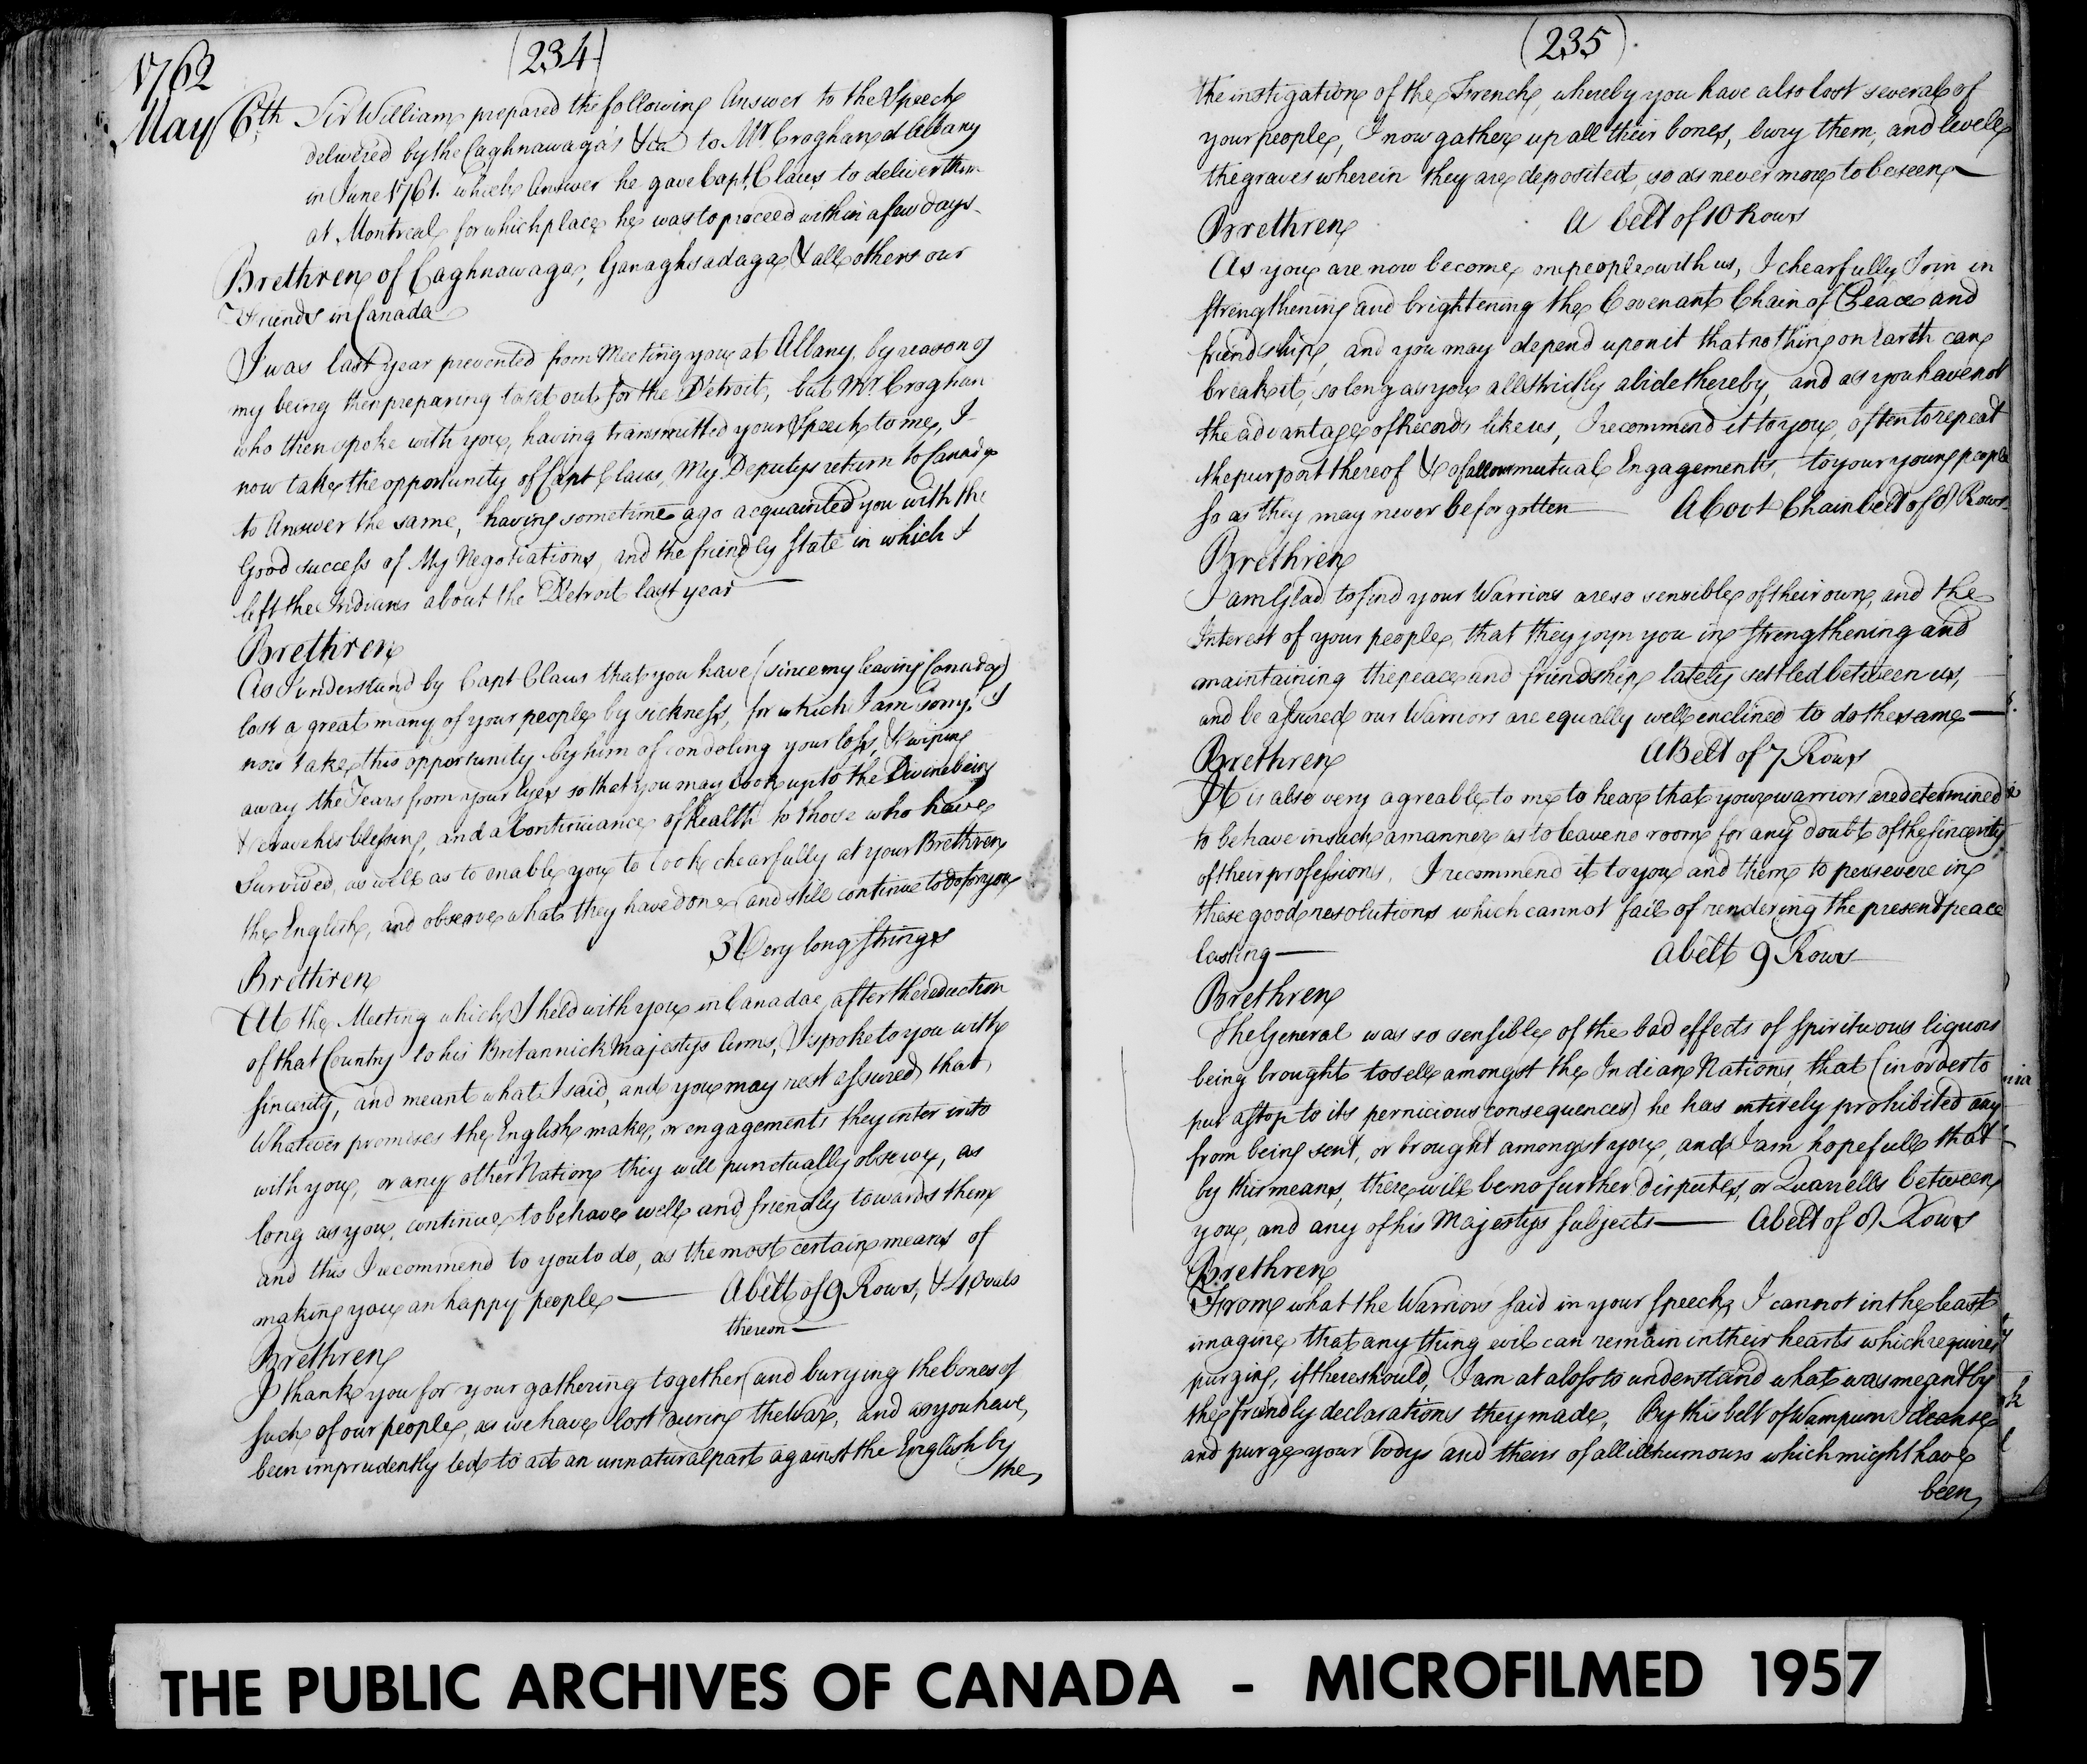 1762
(234)
May 6th Sir William prepared the following Answer to the Speech
delivered by the Caghnawaga's &ca to Mr. Croghan at Albany
in June 1761. which Answer he gave Capt. Claus to deliver them
at Montreal for which place he was to proceed within a few days.
Brethren of Caghnawaga, Ganaghsadaga & all others our
Friends in Canada
I was last year prevented from Meeting you at Albany, by reason of
my being then preparing to set out for the Detroit, but Mr. Croghan
who then spoke with you, having transmitted your Speech to me, I
now take the opportunity of Capt Claus, My Deputys return to Canada
to Answer the same, having sometime ago acquainted you with the
Good success of My Negotiations, and the friendly state in which I
left the Indians about the Detroit last year —
Brethren
As I understand by Capt Claus that you have (since my leaving Canada)
lost a great many of your people by sickness, for which I am sorry. I
now take this opportunity by him of condoling your loss, & wiping
away the Tears from your Eyes so that you may look up to the Divine being
& crave his blessing, and a Continuance of health to those who have
Survived, as well as to enable you to look chearfully at your Brethren
the English, and observe what they have done, and still continue to do for you
3 Very long Strings
Brethren
At the Meeting which I held with you in Canada, after the reduction
of that Country to his Britannick Majestys Arms, I spoke to you with
sincerity, and meant what I said, and you may rest assured, that,
Whatever promises the English make, or engagements they enter into
with you, or any other Nation they will punctually observe, as
long as you, continue to behave well and friendly towards them
and this I recommend to you to do, as the most certain means of
making you an happy people — A belt of 9 Rows, & 4 Ovals
thereon —
Brethren
I thank you for your gathering together, and burying the bones of
such of our people, as we have lost during the War, and as you have,
been imprudently led to act an unnatural part against the English by
the
(235)
the instigation of the French, whereby you have also lost several of
your people, I now gather up all their bones, bury them, and level
the graves wherein they are deposited, so as never more to be seen —
Brethren A belt of 10 Rows
As you are now become one people with us, I chearfully Join in
strengthening and brightening the Covenant Chain of Peace and
friendship, and you may depend upon it that nothing on Earth can
break it, so long as you all strictly abide thereby, and as you have not
the advantage of Records like us, I recommend it to you, often to repeat
the purport thereof & of all our mutual Engagements, to your young people
so as they may never be forgotten — A Covt Chain belt of 8 Rows.
Brethren
I am Glad to find your Warriors are so sensible of their own, and the
Interest of your people, that they joyn you in strengthening and
maintaining the peace and friendship lately settled between us,
and be assured our Warriors are equally well enclined to do the same —
Brethren A Belt of 7 Rows
It is also very agreable to me to hear that your warriors are determined
to behave in such a manner as to leave no room for any doubt of the sincerity
of their professions. I recommend it to you and them to persevere in
these good resolutions which cannot fail of rendering the present peace
lasting — A belt 9 Rows
Brethren
The General was so sensible of the bad effects of spirituous liquors
being brought to sell amongst the Indian Nations, that (in order to
put a stop to its pernicious consequences) he has entirely prohibited any
from being sent, or brought amongst you, and I am hopefull that
by this means, there will be no further disputes, or Quarrells between
you, and any of his Majestys subjects — A belt of 8 Rows
Brethren
From what the Warriors said in your speech, I cannot in the least
imagine that any thing evil can remain in their hearts which requires
purging, if there should, I am at a loss to understand what was meant by
the friendly declarations they made. By this belt of Wampum I cleanse
and purge your bodys and theirs of all ill humours which might have
been
THE PUBLIC ARCHIVES OF CANADA - MICROFILMED 1957